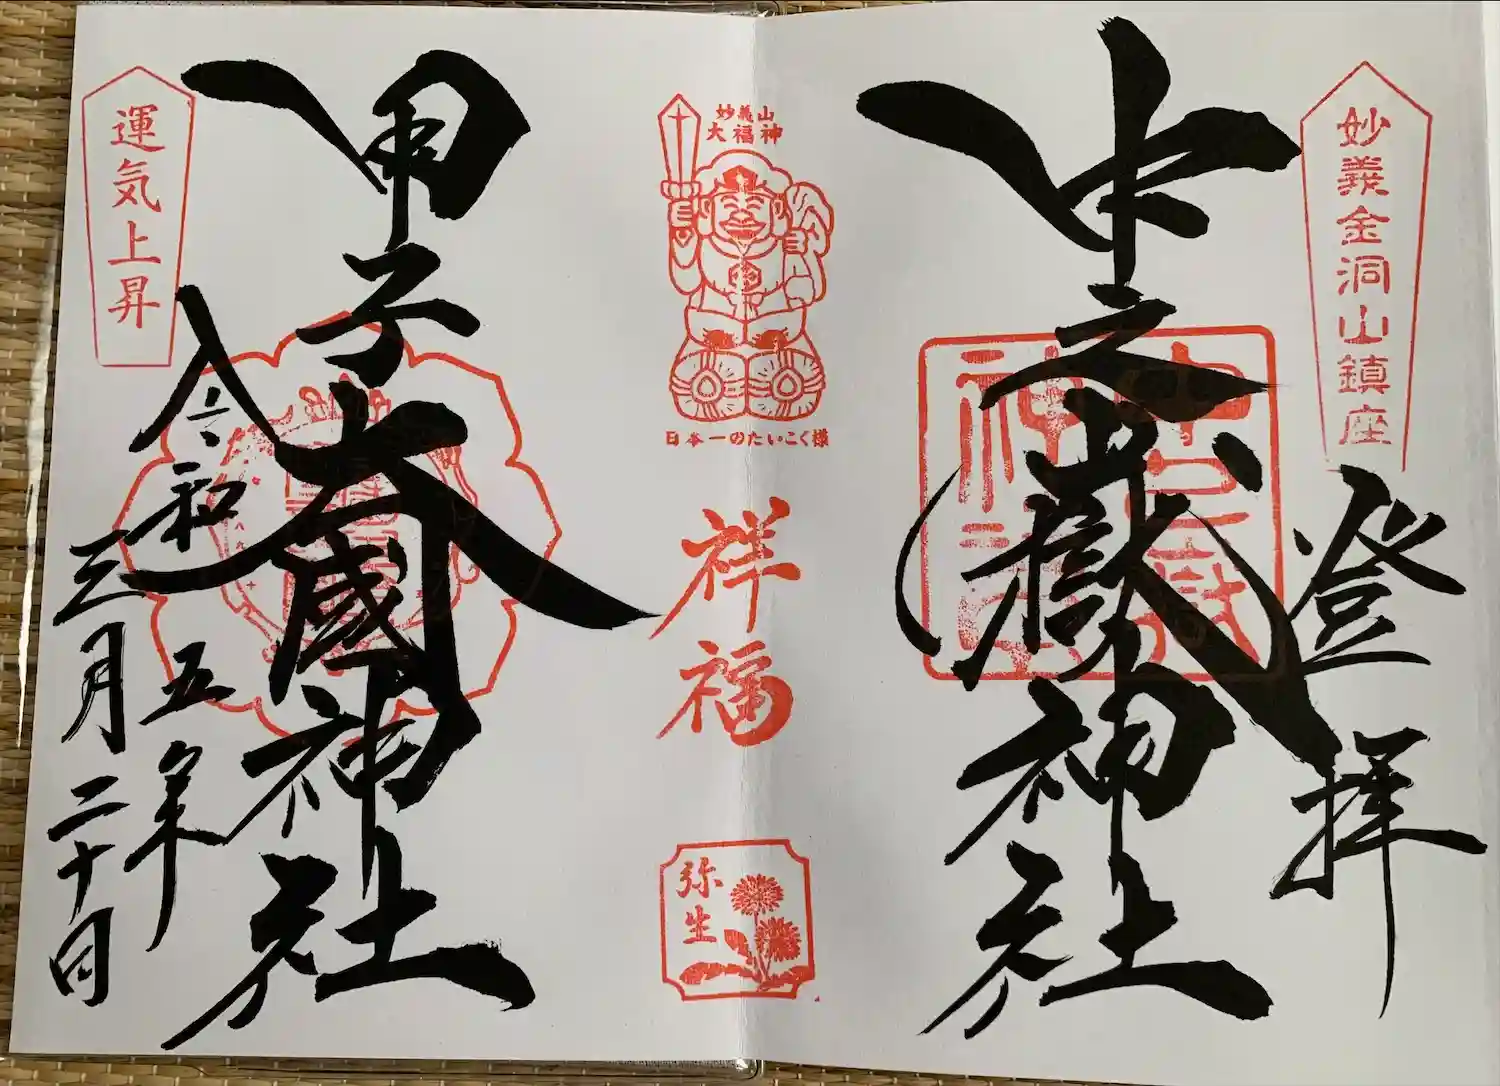 妙義金洞山鎮座
登拝
中之嶽神社
妙義山
大福神
日本一のたいこく様
祥福
弥生
甲子大國神社
運気上昇
令和五年
三月二十日